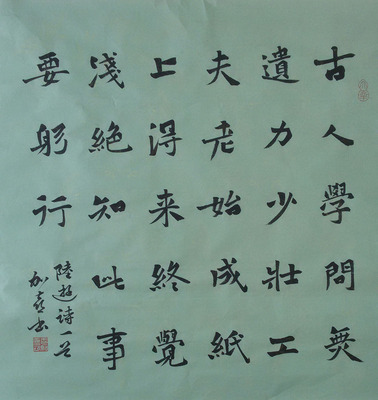 古人學問無
遺力少壯工
夫老始成紙
上得来終覺
淺絕知此事
要躬行
陸遊詩一首
书